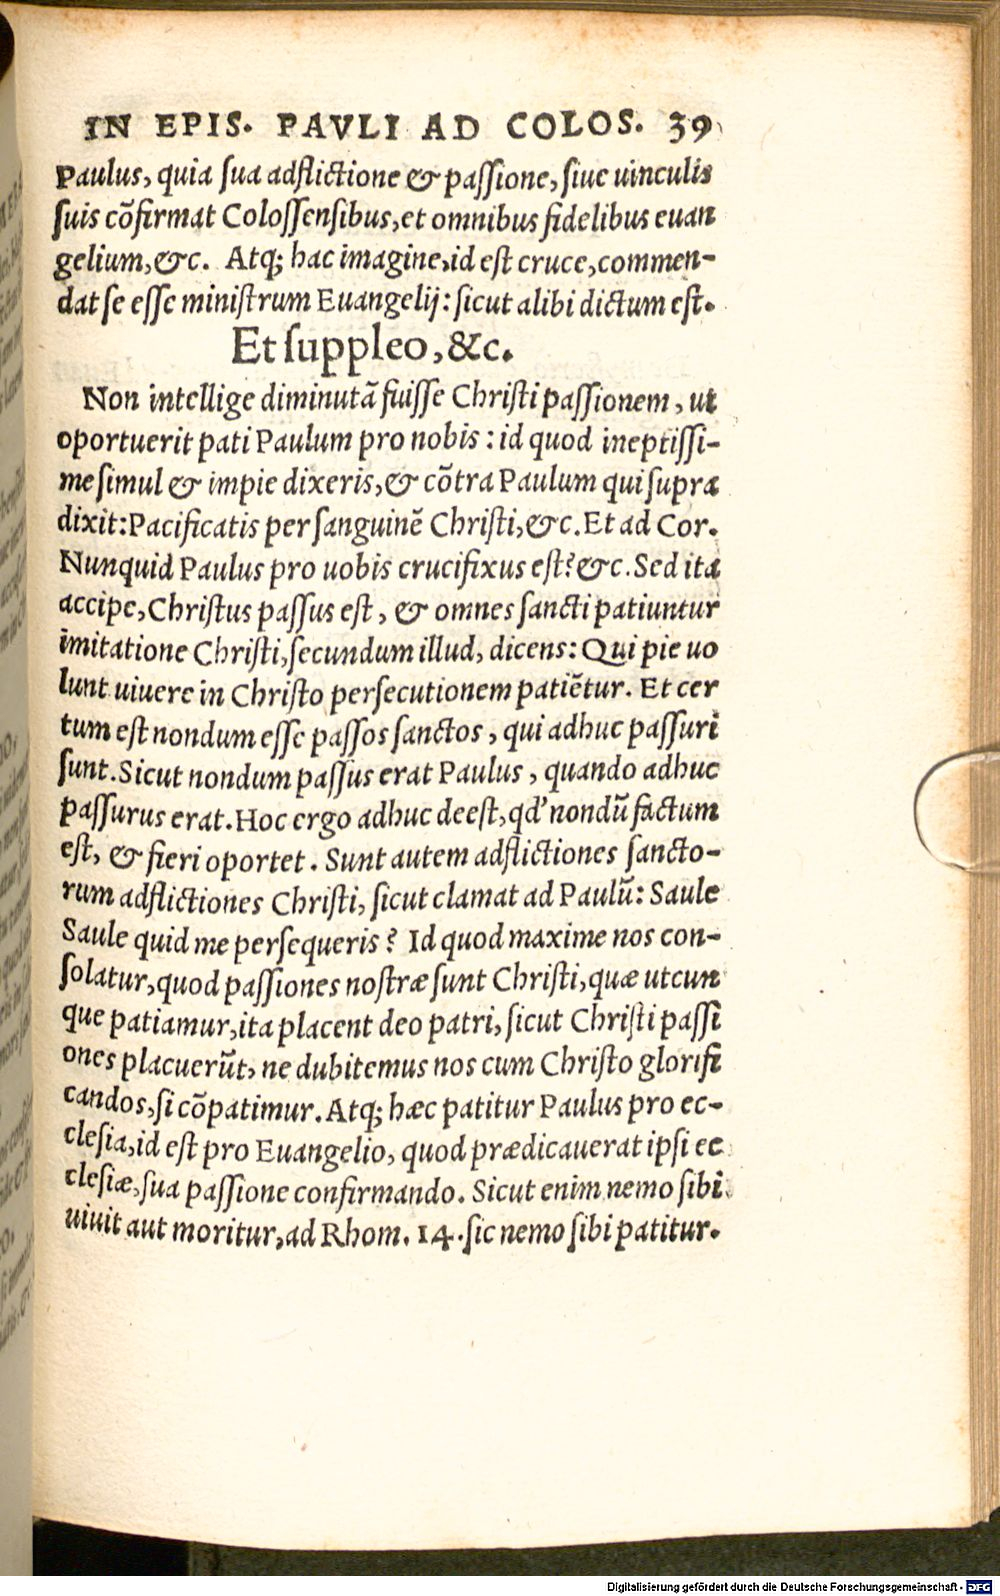 IN EPIS. PAVLI AD COLOS. 39
Paulus, quia sua adflictione & passione, siue uinculis
suis cõfirmat Colossensibus, et omnibus fidelibus euan
gelium, &c. Atq; hac imagine, id est cruce, commen-
dat se esse ministrum Euangelij: sicut alibi dictum est.
Et suppleo, &c.
Non intellige diminutã fuisse Christi passionem, ut
oportuerit pati Paulum pro nobis: id quod ineptissi-
me simul & impie dixeris, & cõtra Paulum qui supra
dixit: Pacificatis per sanguinẽ Christi, &c. Et ad Cor.
Nunquid Paulus pro uobis crucifixus est? &c. Sed ita
accipe, Christus passus est, & omnes sancti patiuntur
imitatione Christi, secundum illud, dicens: Qui pie uo
lunt uiuere in Christo persecutionem patiẽtur. Et cer
tum est nondum esse passos sanctos, qui adhuc passuri
sunt. Sicut nondum passus erat Paulus, quando adhuc
passurus erat. Hoc ergo adhuc deest, qd' nondũ factum
est, & fieri oportet. Sunt autem adflictiones sancto-
rum adflictiones Christi, sicut clamat ad Paulũ: Saule
Saule quid me persequeris? Id quod maxime nos con-
solatur, quod passiones nostræ sunt Christi, quæ utcun
que patiamur, ita placent deo patri, sicut Christi passi
ones placuerũt, ne dubitemus nos cum Christo glorifi
candos, si cõpatimur. Atq; hæc patitur Paulus pro ec-
clesia, id est pro Euangelio, quod prædicauerat ipsi ec
clesiæ, sua passione confirmando. Sicut enim nemo sibi
uiuit aut moritur, ad Rhom. 14. sic nemo sibi patitur.
Digitalisierung gefördert durch die Deutsche Forschungsgemeinschaft - DFG